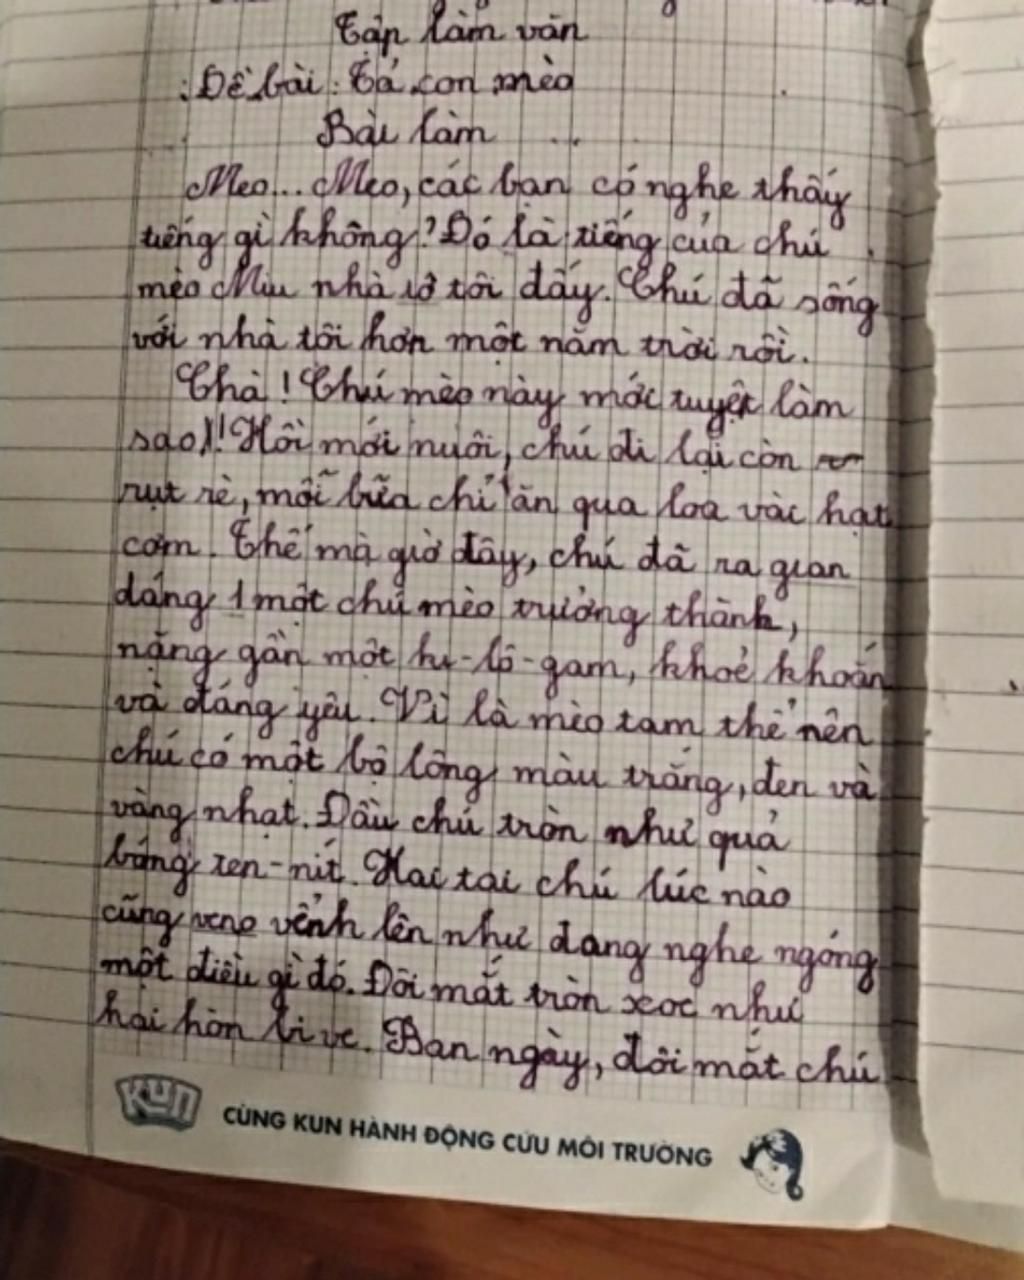 Tập làm văn
Đề bài: Tả con mèo
Bài làm
Meo... Meo, các bạn có nghe thấy
tiếng gì không? Đó là tiếng của chú
mèo Miu nhà ở tôi đấy. Chú đã sống
với nhà tôi hơn một năm trời rồi.
Chà! Chú mèo này mới tuyệt làm
sao!! Hồi mới nuôi, chú đi lại còn
rụt rè, mỗi bữa chỉ ăn qua loa vài hạt
cơm. Thế mà giờ đây, chú đã ra gian
dáng 1 một chú mèo trưởng thành,
nặng gần một ki-lô-gam, khoẻ khoắn
và đáng yêu. Vì là mèo tam thể nên
chú có một bộ lông màu trắng, đen và
vàng nhạt. Đầu chú tròn như quả
bóng ten-nít. Hai tai chú lúc nào
cũng vểnh lên như đang nghe ngóng
một điều gì đó. Đôi mắt tròn xoe như
hai hòn bi ve. Ban ngày, đôi mắt chú
KUN
CÙNG KUN HÀNH ĐỘNG CỨU MÔI TRƯỜNG